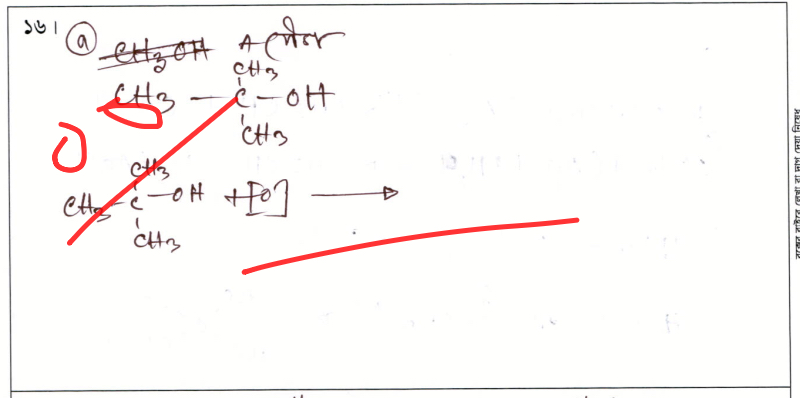 ১৬। ⓐ C̶H̶₃̶ ̶O̶H̶ A যৌগ
CH₃
CH₃ — C — OH
CH₃
CH₃
CH₃ - C — OH + [O] ⟶
CH₃
0
বক্সের বাইরে লেখা বা দাগ দেয়া নিষেধ